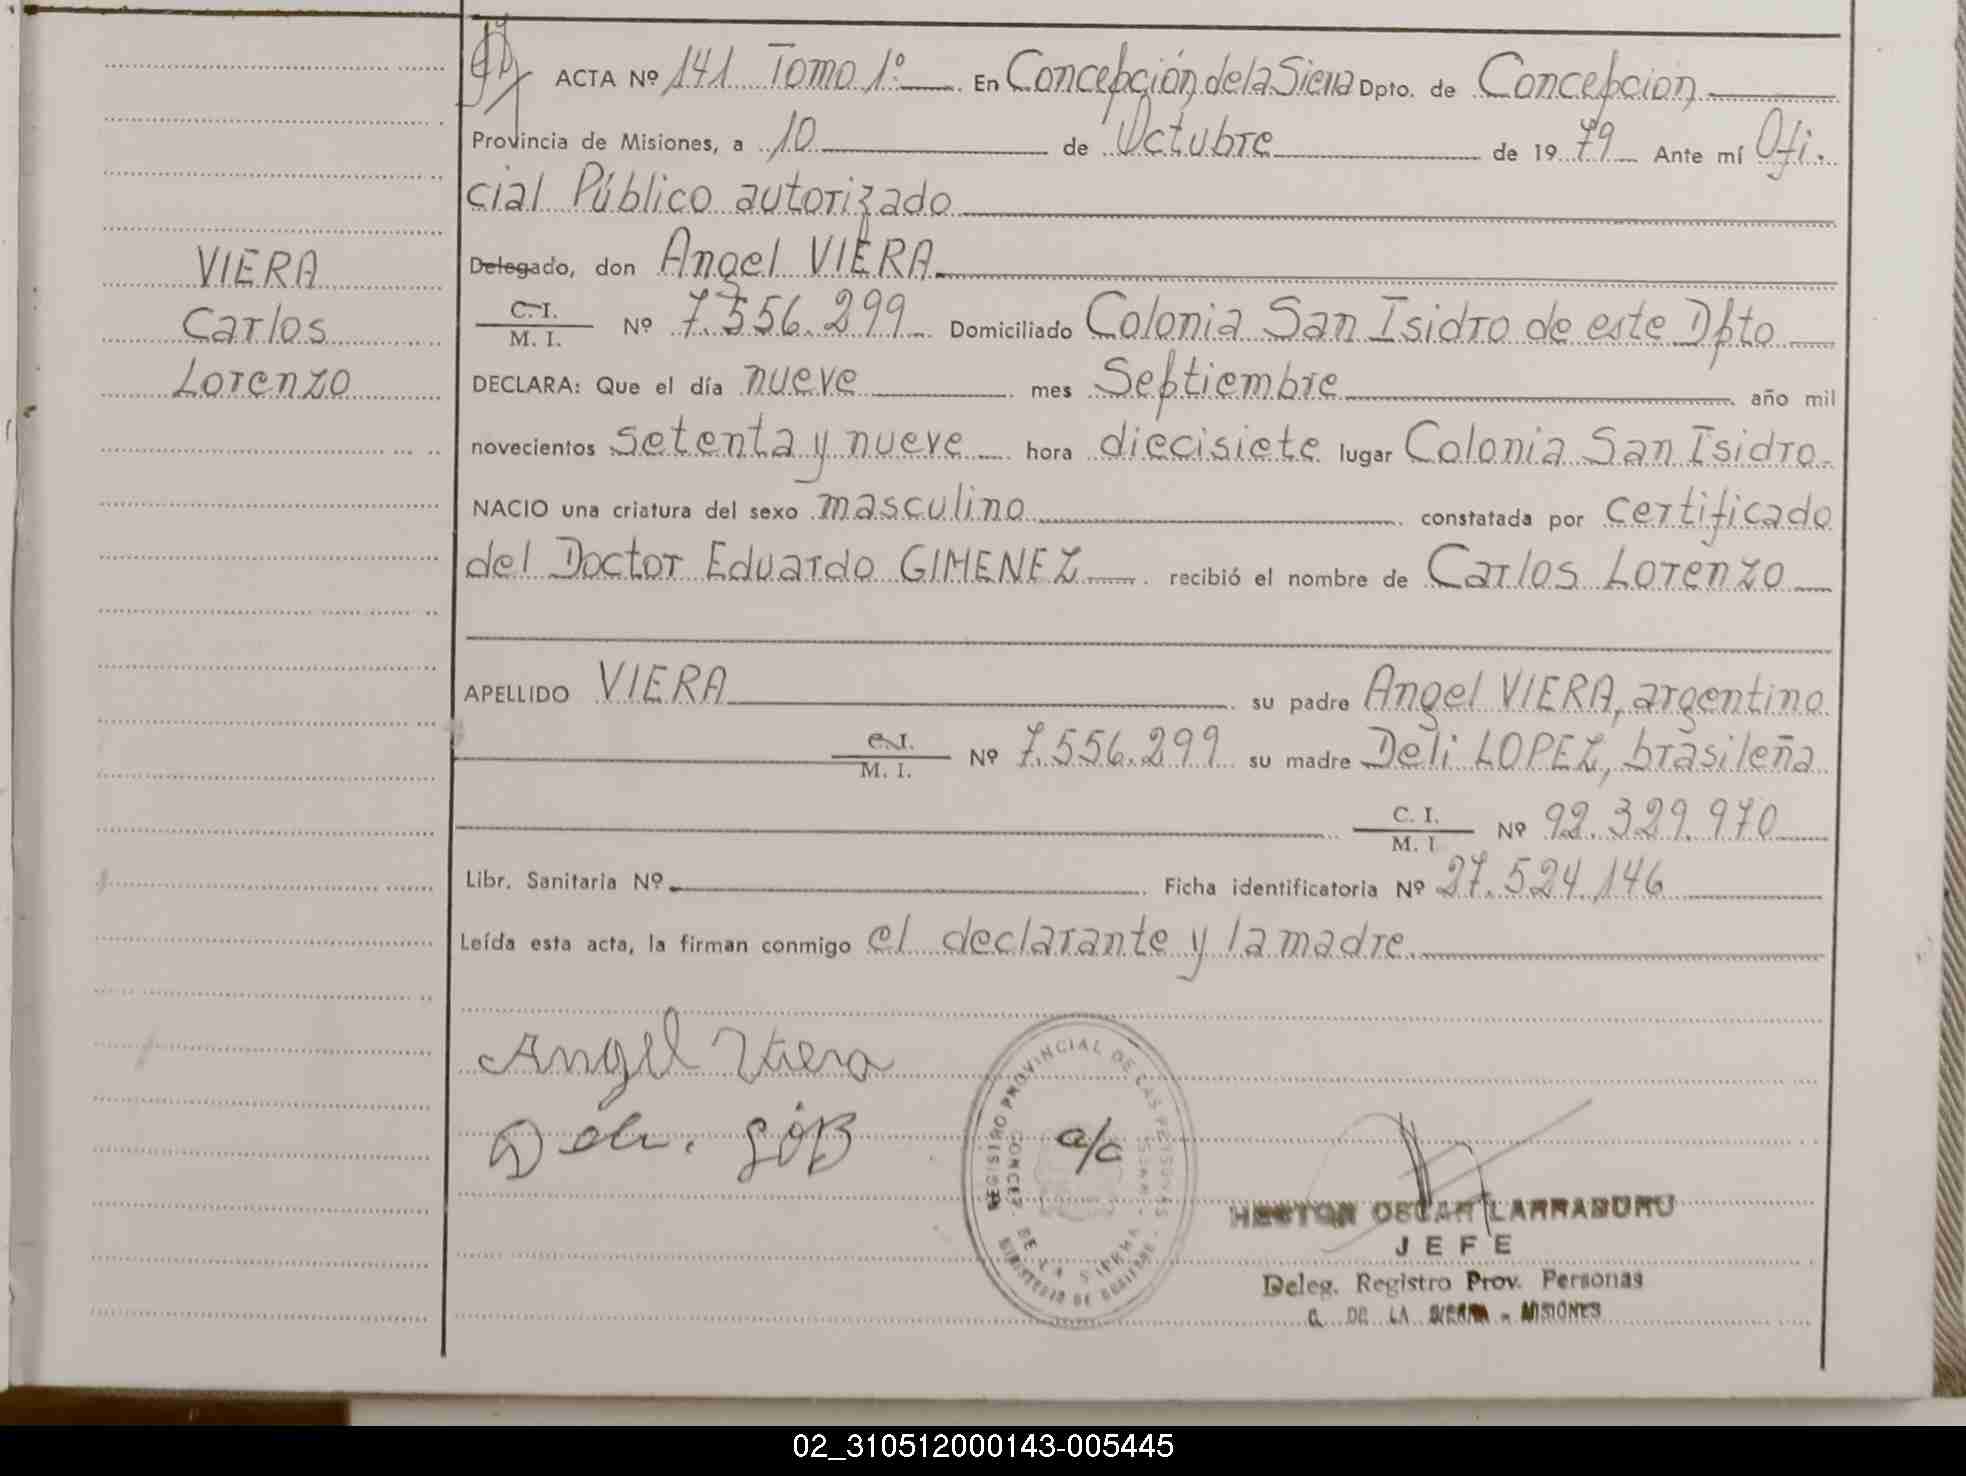 ACTA Nº 141 Tomo 1º En Concepción de la Sierra Dpto. de Concepción
Provincia de Misiones, a 10 de Octubre de 1979 Ante mí Ofi-
cial Público autorizado
Delegado, don Angel VIERA
C. I. / M. I. Nº 7.556.299 Domiciliado Colonia San Isidro de este Dpto
DECLARA: Que el día nueve mes Septiembre año mil
novecientos setenta y nueve hora diecisiete lugar Colonia San Isidro
NACIO una criatura del sexo masculino constatada por certificado
del Doctor Eduardo GIMENEZ recibió el nombre de Carlos Lorenzo
APELLIDO VIERA su padre Angel VIERA, argentino
C. I. / M. I. Nº 7.556.299 su madre Deli LOPEZ, brasileña
C. I. / M. I. Nº 92.329.970
Libr. Sanitaria Nº Ficha identificatoria Nº 27.524.146
Leída esta acta, la firman conmigo el declarante y la madre.
VIERA
Carlos
Lorenzo
Angel Viera
REGISTRO PROVINCIAL DE LAS PERSONAS
CONCEP. DE LA SIERRA
MINISTERIO DE GOBIERNO
a/c
HECTOR OSCAR LARRABURU
JEFE
Deleg. Registro Prov. Personas
C. DE LA SIERRA - MISIONES
02_310512000143-005445